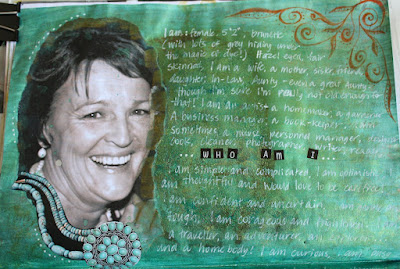 I am: female, 5'2", brunette
(with lots of grey hiding under
the magic of dye!) Hazel eyes, fair
skinned, I am a wife, a mother, sister, friend,
daughter, In-Law, Aunty - even a great Aunty
though I'm sure I'm really not old enough for
that! I am an artist a homemaker, a gardener
A business manager, a book-keeper, and
sometimes a nurse, personal manager,
cook, cleaner, photographer, writer, reader
WHO AM I...
I am simple and complicated, I am optimistic
am thoughtful and would love to be carefree
I am confident and uncertain, I am
tough, I am courageous and
a traveller, an adventurer, an explorer
and a homebody! I am curious, I am